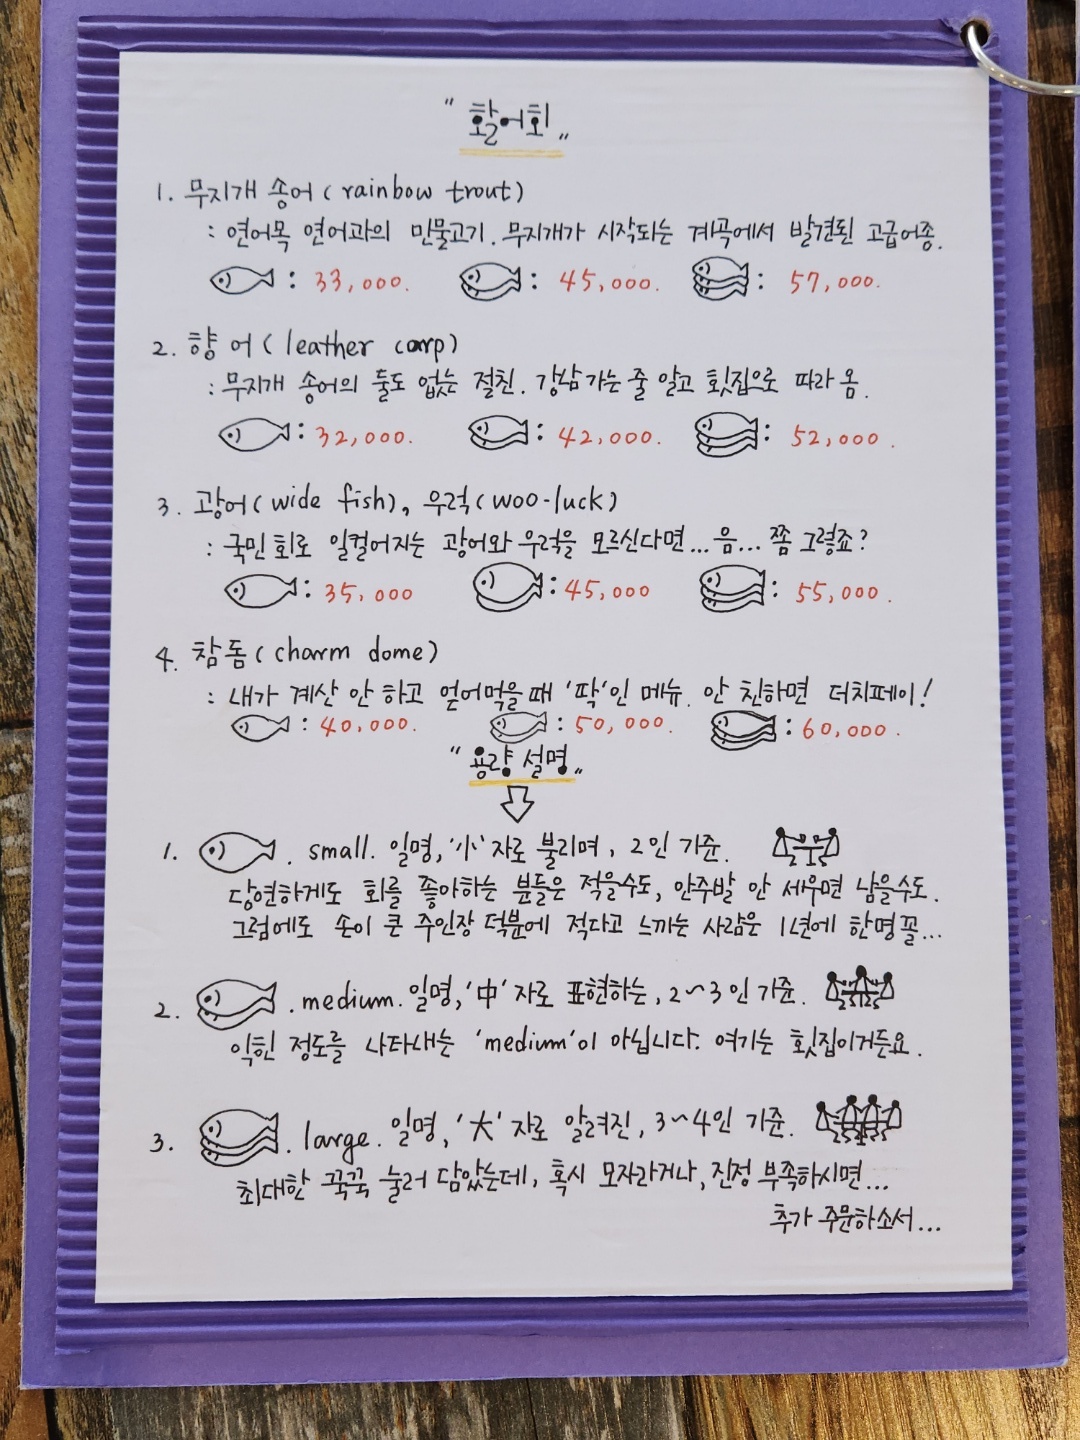 “활어회„
1. 무지개 송어(rainbow trout)
: 연어목 연어과의 민물고기. 무지개가 시작되는 계곡에서 발견된 고급어종.
: 33,000. : 45,000. : 57,000.
2. 향어(leather carp)
: 무지개 송어의 둘도 없는 절친. 강남 가는 줄 알고 횟집으로 따라 옴.
: 32,000. : 42,000. : 52,000.
3. 광어(wide fish), 우럭(woo-luck)
: 국민 회로 일컬어지는 광어와 우럭을 모르신다면...음... 쫌 그렇죠?
: 35,000 : 45,000 : 55,000.
4. 참돔(charm dome)
: 내가 계산 안 하고 얻어먹을 때 '딱'인 메뉴. 안 친하면 더치페이!
: 40,000. : 50,000. : 60,000.
“용량 설명„
1. . small. 일명, '小' 자로 불리며, 2인 기준.
당연하게도 회를 좋아하는 분들은 적을수도, 안주발 안 세우면 남을수도.
그럼에도 손이 큰 주인장 덕분에 적다고 느끼는 사람은 1년에 한명 꼴...
2. . medium. 일명, '中' 자로 표현하는, 2~3인 기준.
익힌 정도를 나타내는 'medium'이 아닙니다. 여기는 횟집이거든요.
3. . large. 일명, '大' 자로 알려진, 3~4인 기준.
최대한 꾹꾹 눌러 담았는데, 혹시 모자라거나, 진정 부족하시면...
추가 주문하소서...